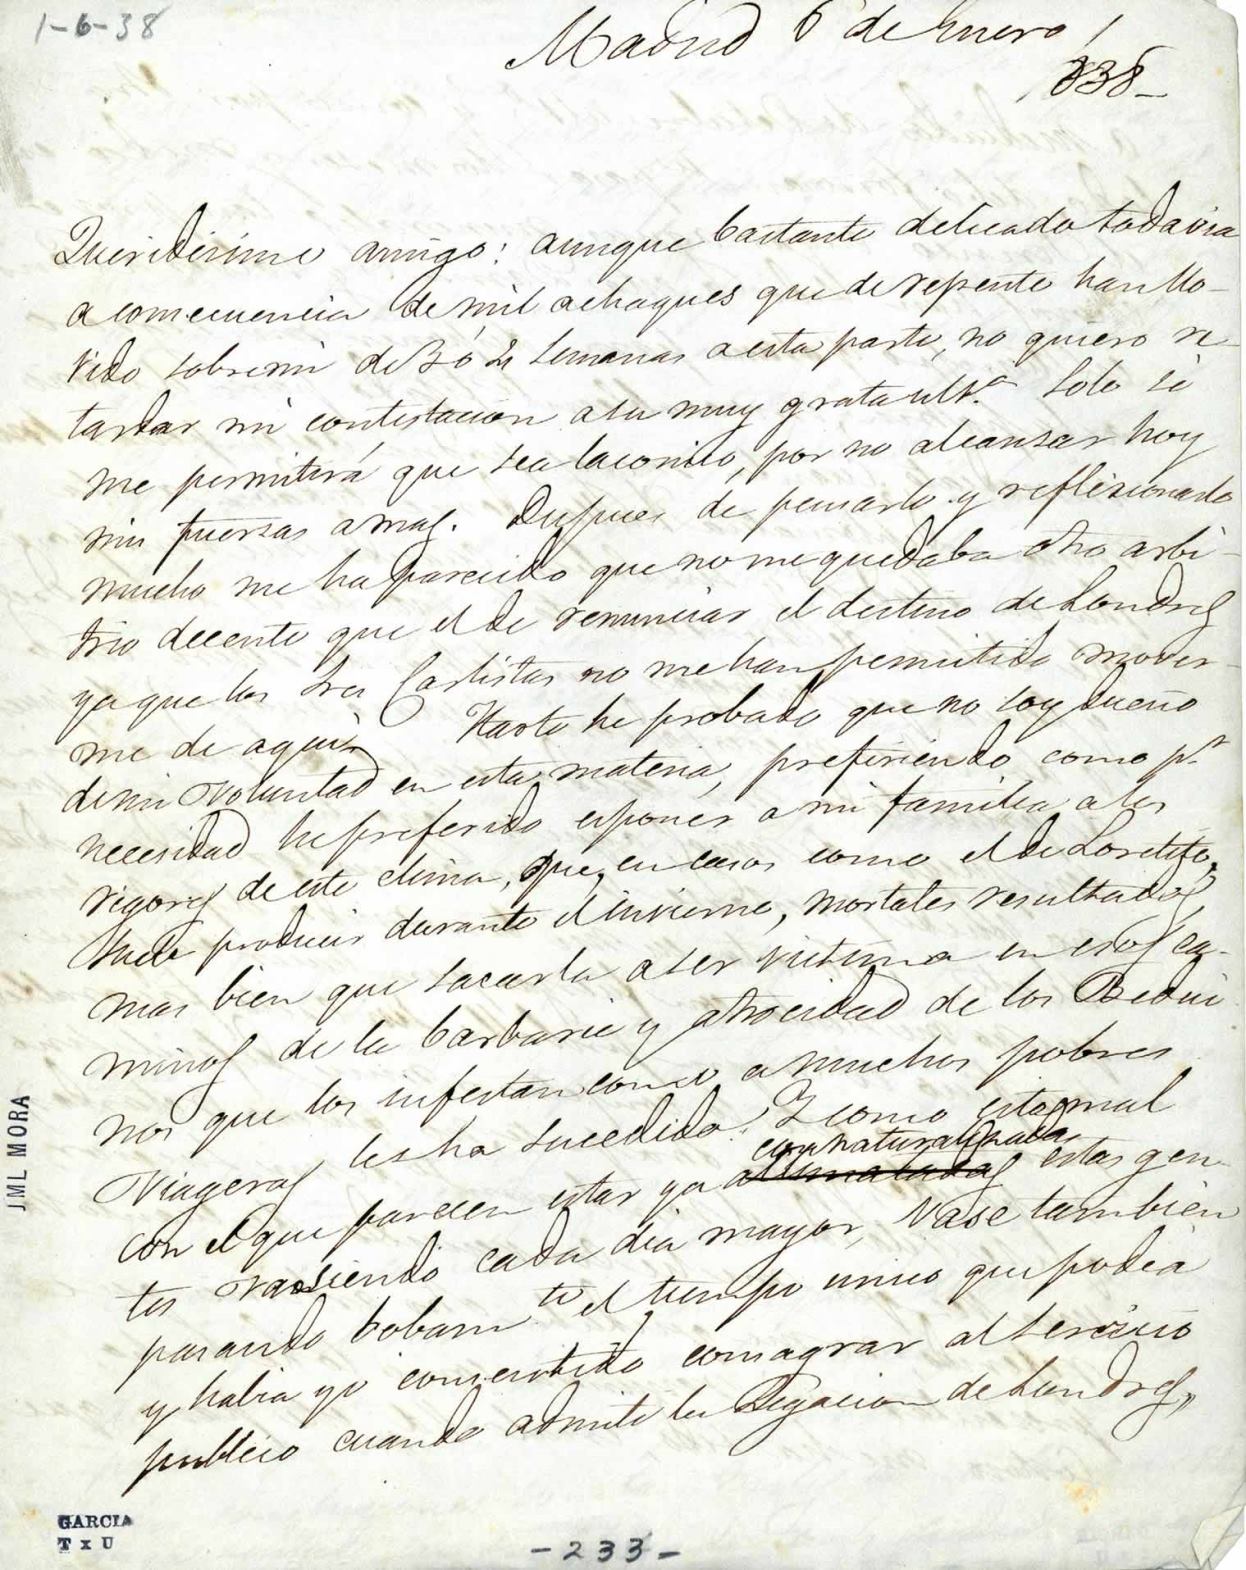 1-6-38
Madrid 6 de Enero /
1838_
Queridísimo amigo: aunque bastante delicado todavia
a consecuencia de mil achaques que de repente han llo-
vido sobre mi de 3 ó 4 semanas a esta parte, no quiero re-
tardar mi contestacion a su muy grata ult.ª Solo si
me permitirá que sea laconico, por no alcanzar hoy
mis fuerzas a mas. Despues de pensarlo y reflexionarlo
mucho me ha parecido que no me quedaba otro arbi-
trio decente que el de renunciar el destino de Londres
ya que los Sres Carlistas no me han permitido mover-
me de aqui. Harto he probado que no soy dueño
de mi voluntad en esta materia, prefiriendo, como p.r
necesidad he preferido esponer a mi familia a los
rigores de este clima, que, en casos como el de Loretito,
suele producir durante el invierno, mortales resultados,
mas bien que sacarla a ser victima en esos ca-
minos de la barbarie y atrocidad de los Bedui
nos que los infestan como a muchos pobres
viageros les ha sucedido. I como este mal
connaturalizadas
con el que parecen estar ya estas gen-
tes va siendo cada dia mayor, vase tambien
pasando bobam.te el tiempo unico que podia
y habia yo consentido consagrar al servicio
publico cuando admiti la Legacion de Londres,
JML MORA
GARCIA
T x U
-233-